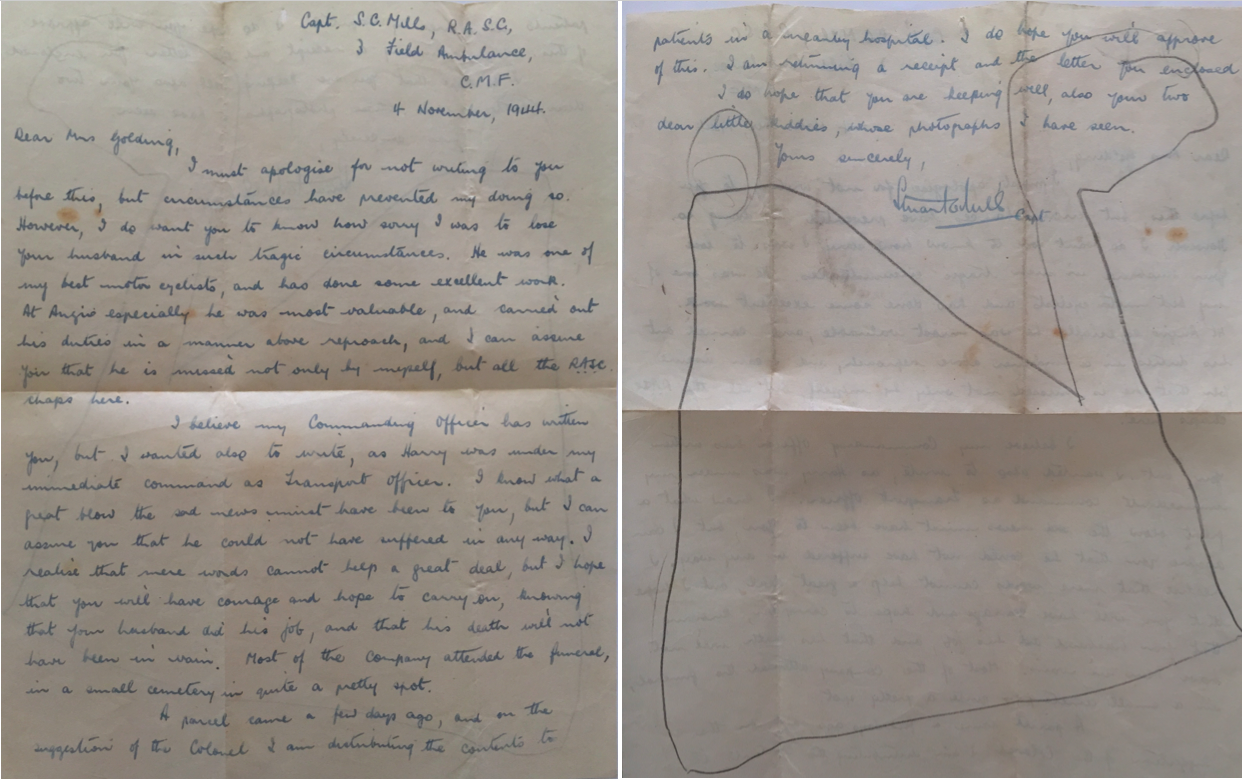 Capt. S.C. Mills, R.A.S.C.,
3 Field Ambulance,
C.M.F.
4 November, 1944.
Dear Mrs Golding,
I must apologise for not writing to you
before this, but circumstances have prevented my doing so.
However, I do want you to know how sorry I was to lose
your husband in such tragic circumstances. He was one of
my best motor cyclists, and has done some excellent work.
At Anzio especially he was most valuable, and carried out
his duties in a manner above reproach, and I can assure
you that he is missed not only by myself, but all the RASC
chaps here.
I believe my Commanding Officer has written
you, but I wanted also to write, as Harry was under my
immediate command as Transport Officer. I know what a
great blow the sad news must have been to you, but I can
assure you that he could not have suffered in any way. I
realise that mere words cannot help a great deal, but I hope
that you will have courage and hope to carry on, knowing
that your husband did his job, and that his death will not
have been in vain. Most of the Company attended the funeral,
in a small cemetery in quite a pretty spot.
A parcel came a few days ago, and on the
suggestion of the Colonel I am distributing the contents to
patients in a nearby hospital. I do hope you will approve
of this. I am returning a receipt and the letter you enclosed
I do hope that you are keeping well, also your two
dear little kiddies, whose photographs I have seen.
Yours sincerely,
Stuart Mills
Capt